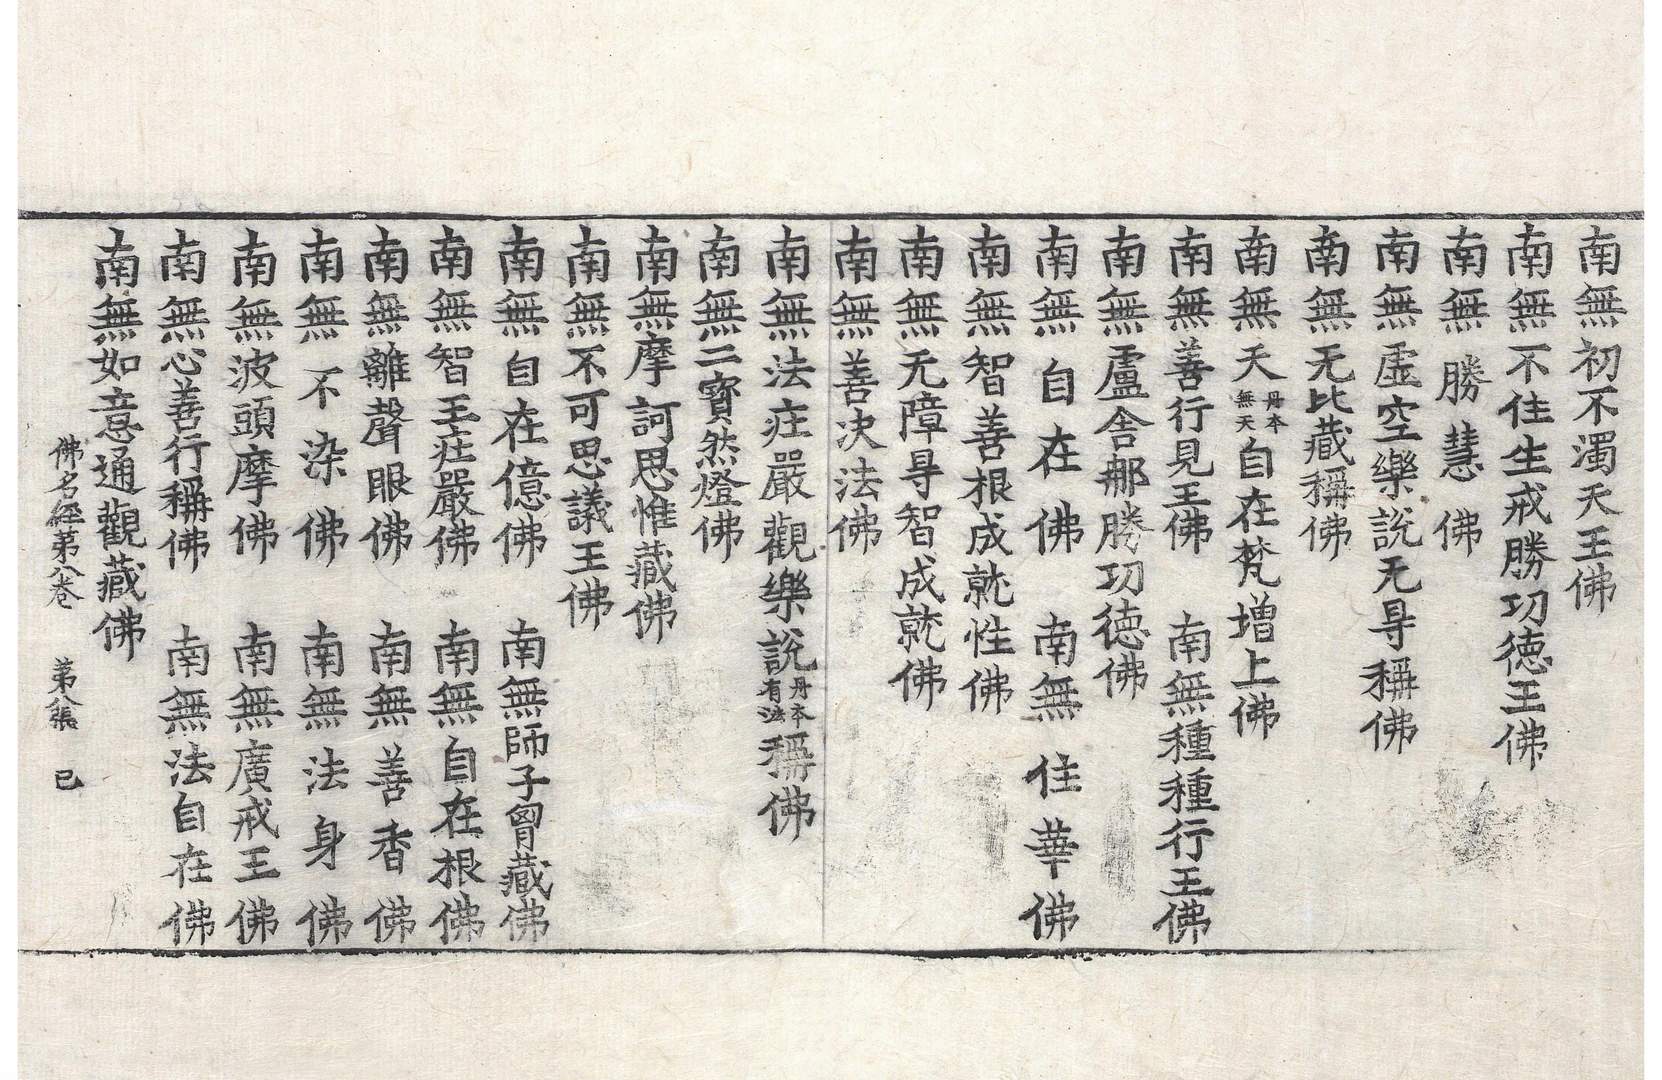 南無初不濁天王佛
南無不住生戒勝功徳王佛
南無勝慧佛
南無虛空樂說无㝵稱佛
南無无比藏稱佛
南無天丹本無天自在梵增上佛
南無善行見王佛　南無種種行王佛
南無盧舍那勝功徳佛
南無自在佛　南無住華佛
南無智善根成就性佛
南無无障㝵智成就佛
南無善决法佛
南無法㽵嚴觀樂說丹本有法稱佛
南無二寶然燈佛
南無摩訶思惟藏佛
南無不可思議王佛
南無自在億佛　南無師子胷藏佛
南無智王㽵嚴佛　南無自在根佛
南無離聲眼佛　南無善香佛
南無不染佛　南無法身佛
南無波頭摩佛　南無廣戒王佛
南無心善行稱佛　南無法自在佛
南無如意通觀藏佛
佛名經苐八卷　苐八張　已